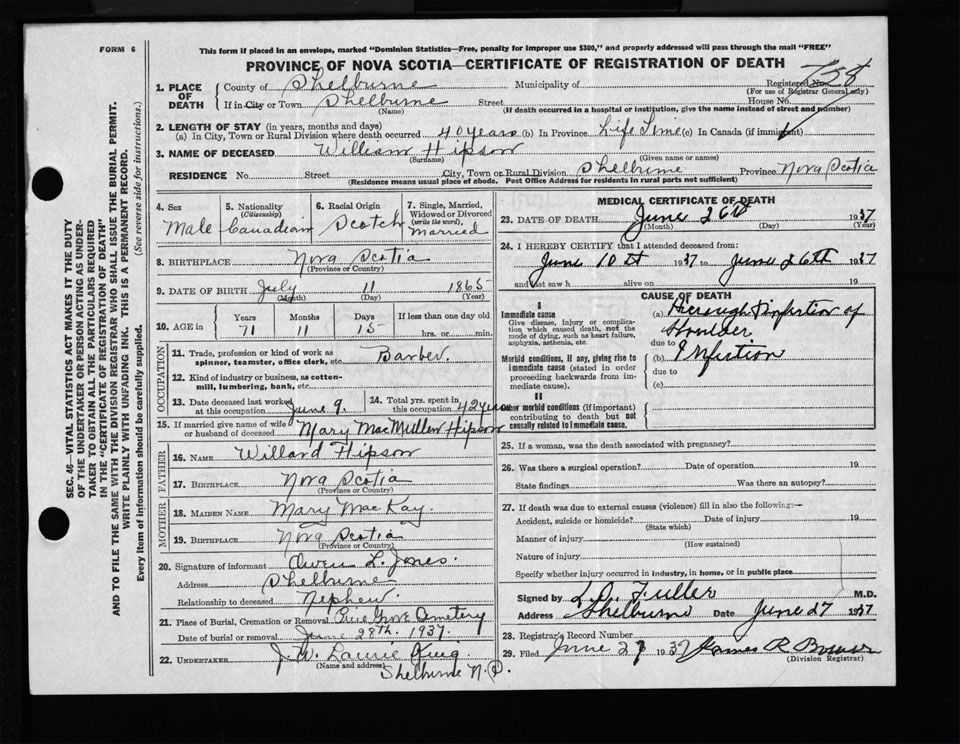 FORM 6
This form if placed in an envelope, marked "Dominion Statistics—Free, penalty for improper use $300," and properly addressed will pass through the mail "FREE"
PROVINCE OF NOVA SCOTIA—CERTIFICATE OF REGISTRATION OF DEATH
SEC. 46—VITAL STATISTICS ACT MAKES IT THE DUTY
OF THE UNDERTAKER OR PERSON ACTING AS UNDER-
TAKER TO OBTAIN ALL THE PARTICULARS REQUIRED
IN THE "CERTIFICATE OF REGISTRATION OF DEATH"
AND TO FILE THE SAME WITH THE DIVISION REGISTRAR WHO SHALL ISSUE THE BURIAL PERMIT.
WRITE PLAINLY WITH UNFADING INK. THIS IS A PERMANENT RECORD.
Every item of information should be carefully supplied. (See reverse side for instructions.)
1. PLACE OF DEATH
County of Shelburne Municipality of Registered No. 758
(For use of Registrar General only)
If in City or Town Shelburne Street House No.
(Name) (If death occurred in a hospital or institution, give the name instead of street and number)
2. LENGTH OF STAY (in years, months and days)
(a) In City, Town or Rural Division where death occurred 40 years (b) In Province Life Time (c) In Canada (if immigrant)
3. NAME OF DECEASED William Hipson
(Surname) (Given name or names)
RESIDENCE No. Street City, Town or Rural Division Shelburne Province Nova Scotia
(Residence means usual place of abode. Post Office Address for residents in rural parts not sufficient)
4. Sex Male
5. Nationality (Citizenship) Canadian
6. Racial Origin Scotch
7. Single, Married, Widowed or Divorced (write the word) Married
8. BIRTHPLACE Nova Scotia
(Province or Country)
9. DATE OF BIRTH July 11 1865
(Month) (Day) (Year)
10. AGE in Years Months Days If less than one day old
71 11 15 hrs. or min.
OCCUPATION
11. Trade, profession or kind of work as spinner, teamster, office clerk, etc. Barber.
12. Kind of industry or business, as cotton-mill, lumbering, bank, etc.
13. Date deceased last worked at this occupation June 9.
14. Total yrs. spent in this occupation 42 years
15. If married give name of wife or husband of deceased Mary MacMullen Hipson
FATHER
16. NAME Willard Hipson
17. BIRTHPLACE Nova Scotia
(Province or Country)
MOTHER
18. MAIDEN NAME Mary MacKay.
19. BIRTHPLACE Nova Scotia
(Province or Country)
20. Signature of informant Owen L. Jones.
Address Shelburne
Relationship to deceased Nephew.
21. Place of Burial, Cremation or Removal Pine Grove Cemetery
Date of burial or removal June 28th. 1937.
22. UNDERTAKER J. W. Laurie King.
(Name and address) Shelburne N.S.
MEDICAL CERTIFICATE OF DEATH
23. DATE OF DEATH June 26th 1937
(Month) (Day) (Year)
24. I HEREBY CERTIFY that I attended deceased from:
June 10th 1937 to June 26th 1937
and last saw h alive on 19
CAUSE OF DEATH
I
Immediate cause
Give disease, injury or complication which caused death, not the mode of dying, such as heart failure, asphyxia, asthenia, etc.
(a) through Infection of
Shoulder
due to
Morbid conditions, if any, giving rise to immediate cause (stated in order proceeding backwards from immediate cause).
(b) Infection
due to
(c)
II
Other morbid conditions (if important) contributing to death but not causally related to immediate cause.
25. If a woman, was the death associated with pregnancy?
26. Was there a surgical operation? Date of operation 19
State findings Was there an autopsy?
27. If death was due to external causes (violence) fill in also the following:—
Accident, suicide or homicide? Date of injury 19
(State which)
Manner of injury
(How sustained)
Nature of injury
Specify whether injury occurred in industry, in home, or in public place
Signed by L.O. Fuller M.D.
Address Shelburne Date June 27 1937
28. Registrar's Record Number
29. Filed June 27 1937 James R Bower
(Division Registrar)